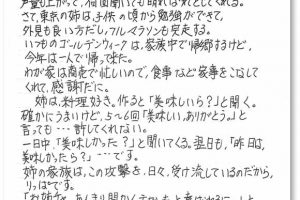 さて、東京の姉は子供の頃から勉強ができて、
外見も良い方だし、フルマラソンも完走する。
いつものゴールデンウィークは家族中で帰郷するけど、
今年は一人で帰って来た。
わが家は商売で忙しいので、食事など家事をこなして
くれて、感謝だに。
姉は、料理好き。作ると「美味しいら?」と聞く。
確かにうまいけど、5〜6回「美味しい、ありがとう。」と
言っても…許してくれない。
一日中、「美味しかった?」と聞いてくる。翌日も、「昨日、
美味しかったら?」…です。
姉の家族は、この攻撃を、日々、受け流しているのだから、
りっぱです。